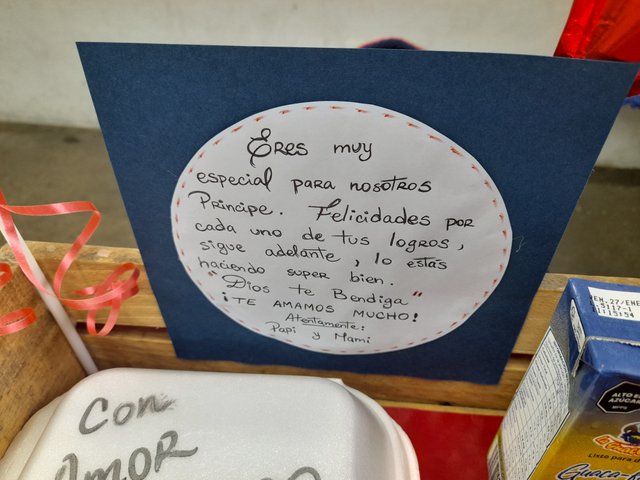 Eres muy
especial para nosotros
Príncipe. Felicidades por
cada uno de tus logros,
sigue adelante, lo estás
haciendo super bien.
"Dios te Bendiga"
¡TE AMAMOS MUCHO!
Atentamente:
Papi y Mami
Con
Amor
VEN.27/ENE
11:15:54
ALTO EN
AZÚCAR
Listo para
Guaca-